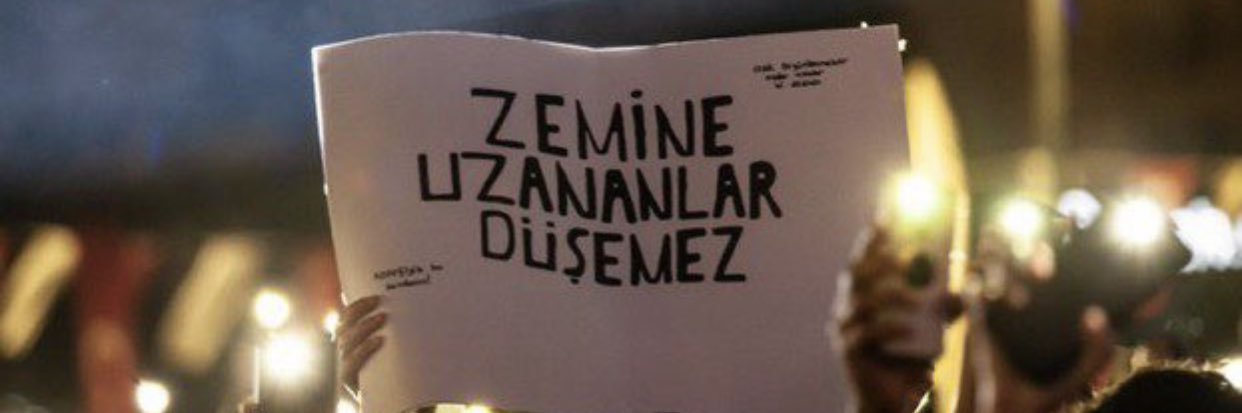 ZEMİNE
UZANANLAR
DÜŞEMEZ